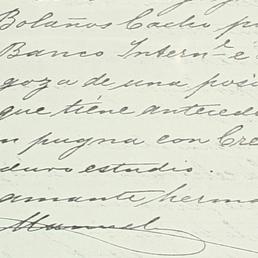 Bolaños Cacho p
Banco Intern.ˡ e
goza de una posi
que tiene antecede
n pugna con Cre
duro estudio.
amante herma
Manuel